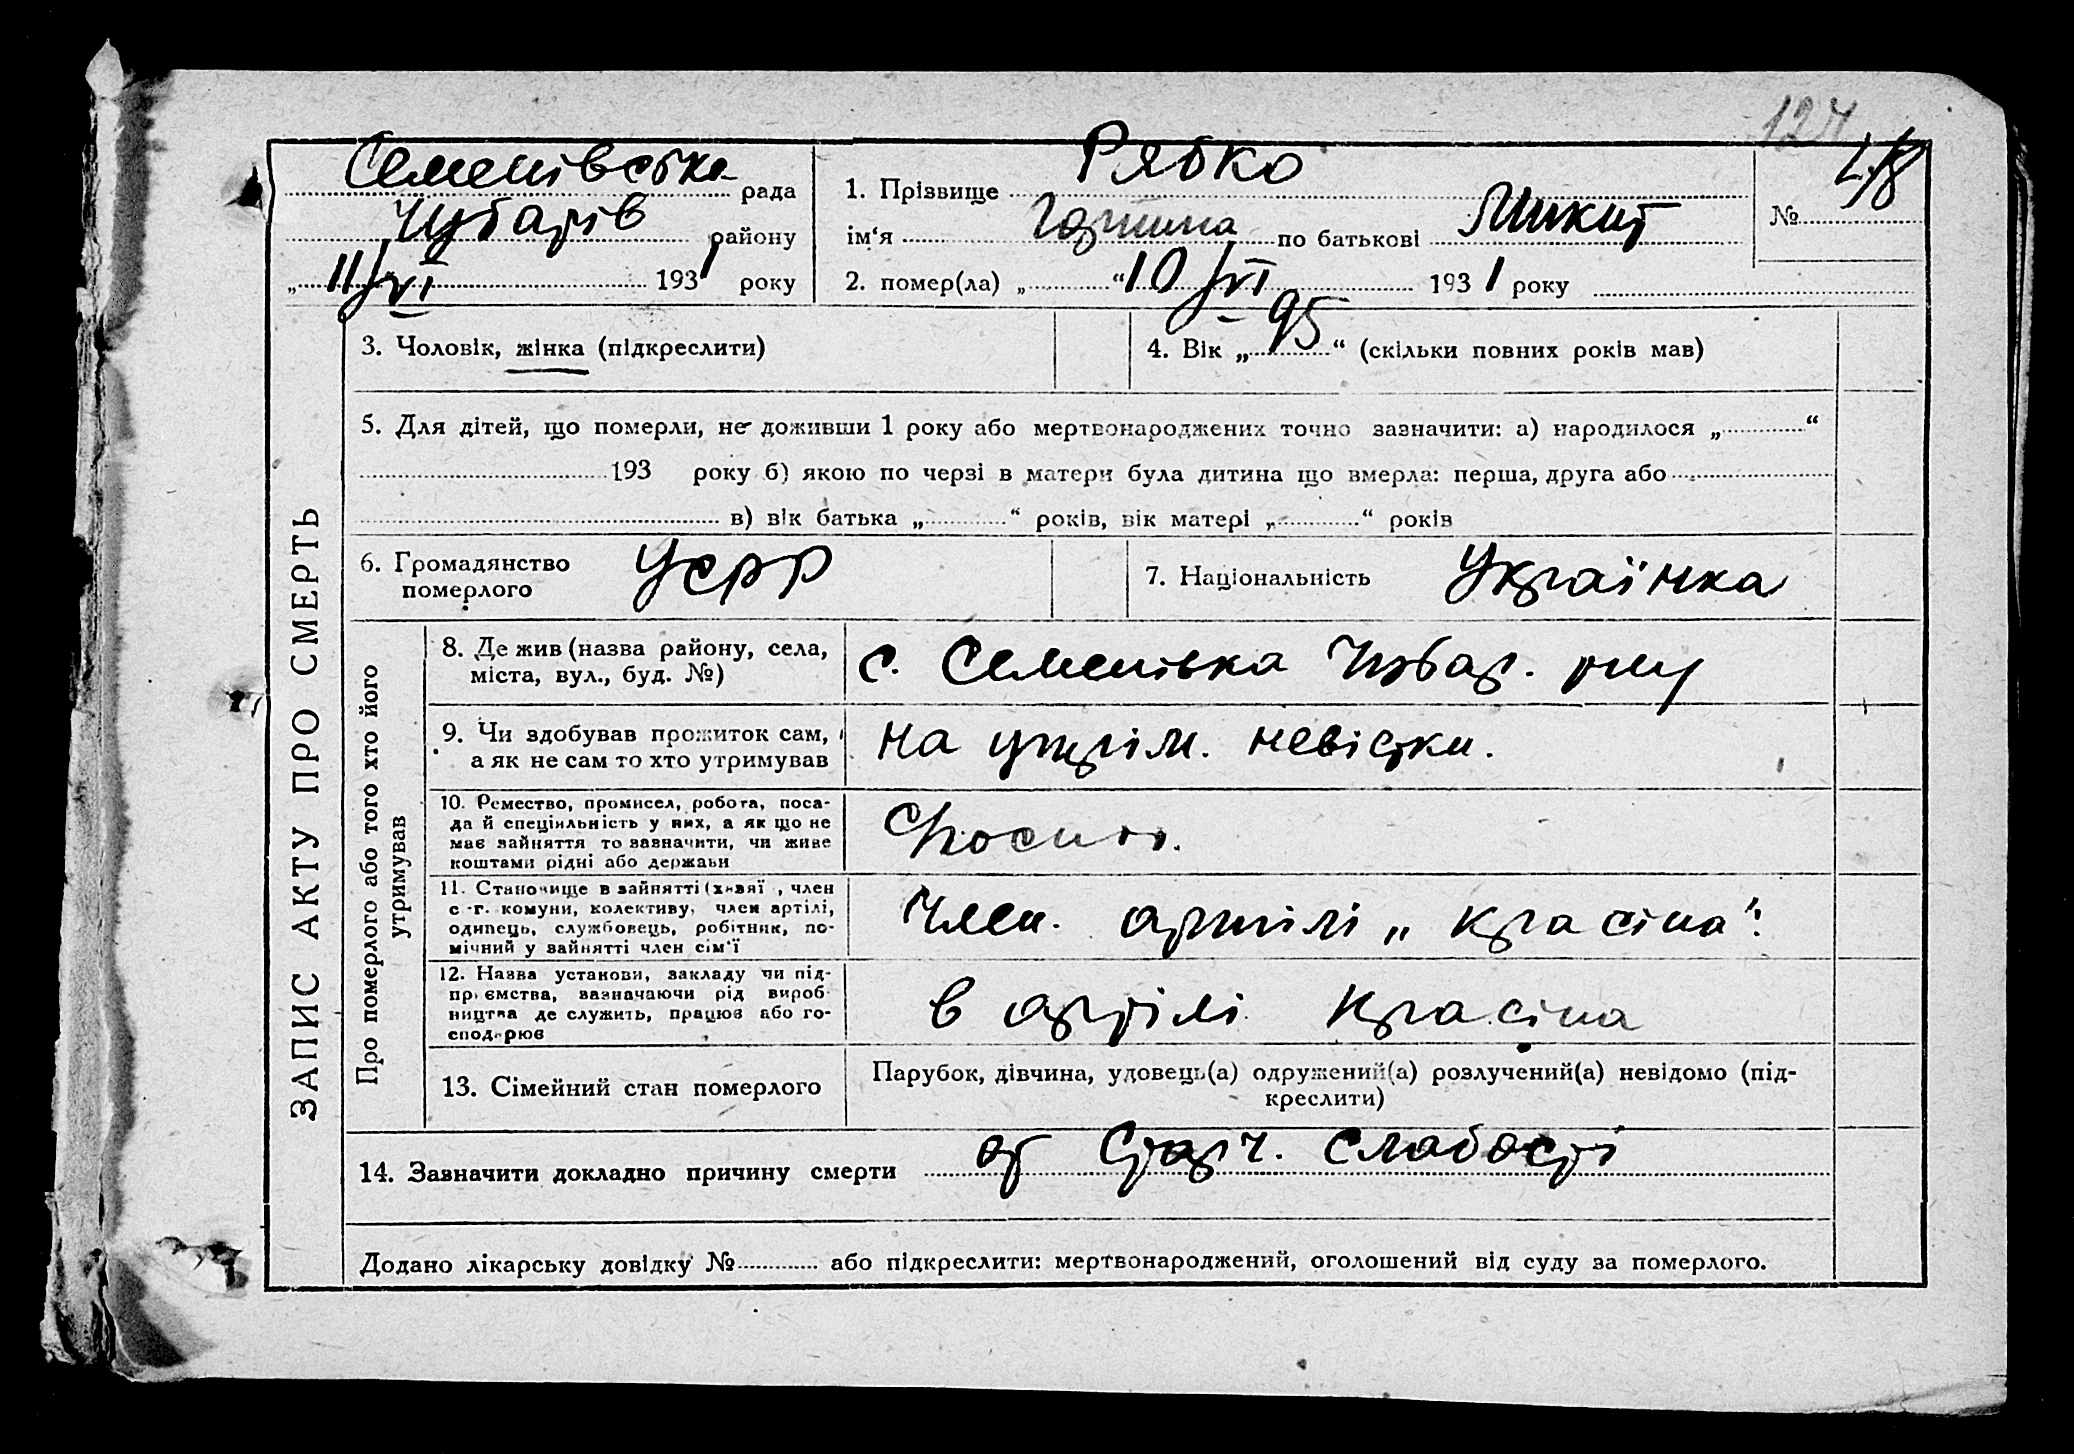 124
Семенівська рада
Чубарів району
„11/VI 1931 року
1. Прізвище Рябко
ім‘я по батькові Микит
№ 48
2. помер(ла) „ “ 10/VI 1931 року
ЗАПИС АКТУ ПРО СМЕРТЬ
3. Чоловік, жінка (підкреслити)
4. Вік „ 95 “ (скільки повних років мав)
5. Для дітей, що померли, не доживши 1 року або мертвонароджених точно зазначити: а) народилося „ “
193 року б) якою по черзі в матери була дитина що вмерла: перша, друга або
в) вік батька „ “ років, вік матері „ “ років
6. Громадянство
померлого
УСРР
7. Національність Українка
Про померлого або того хто його
утримував
8. Де жив (назва району, села,
міста, вул., буд. №)
с. Семенівка Чубар. р-ну
9. Чи здобував прожиток сам,
а як не сам то хто утримував
на утрім. невістки.
10. Ремество, промисел, робота, поса-
да й спеціяльність у них, а як що не
має зайняття то зазначити, чи живе
коштами рідні або держави
11. Становище в зайнятті (хазяї , член
с -г. комуни, колективу, член артілі,
одинець, службовець, робітник, по-
мічний у зайнятті член сім‘ї
Член. артілі „Красіна“.
12. Назва установи, закладу чи під-
приємства, зазначаючи рід вироб-
ництва де служить, працює або го-
сподарює
в артілі Красіна
13. Сімейний стан померлого
Парубок, дівчина, удовець(а) одружений(а) розлучений(а) невідомо (під-
креслити)
14. Зазначити докладно причину смерти от Старч. Слабості
Додано лікарську довідку № або підкреслити: мертвонароджений, оголошений від суду за померлого.